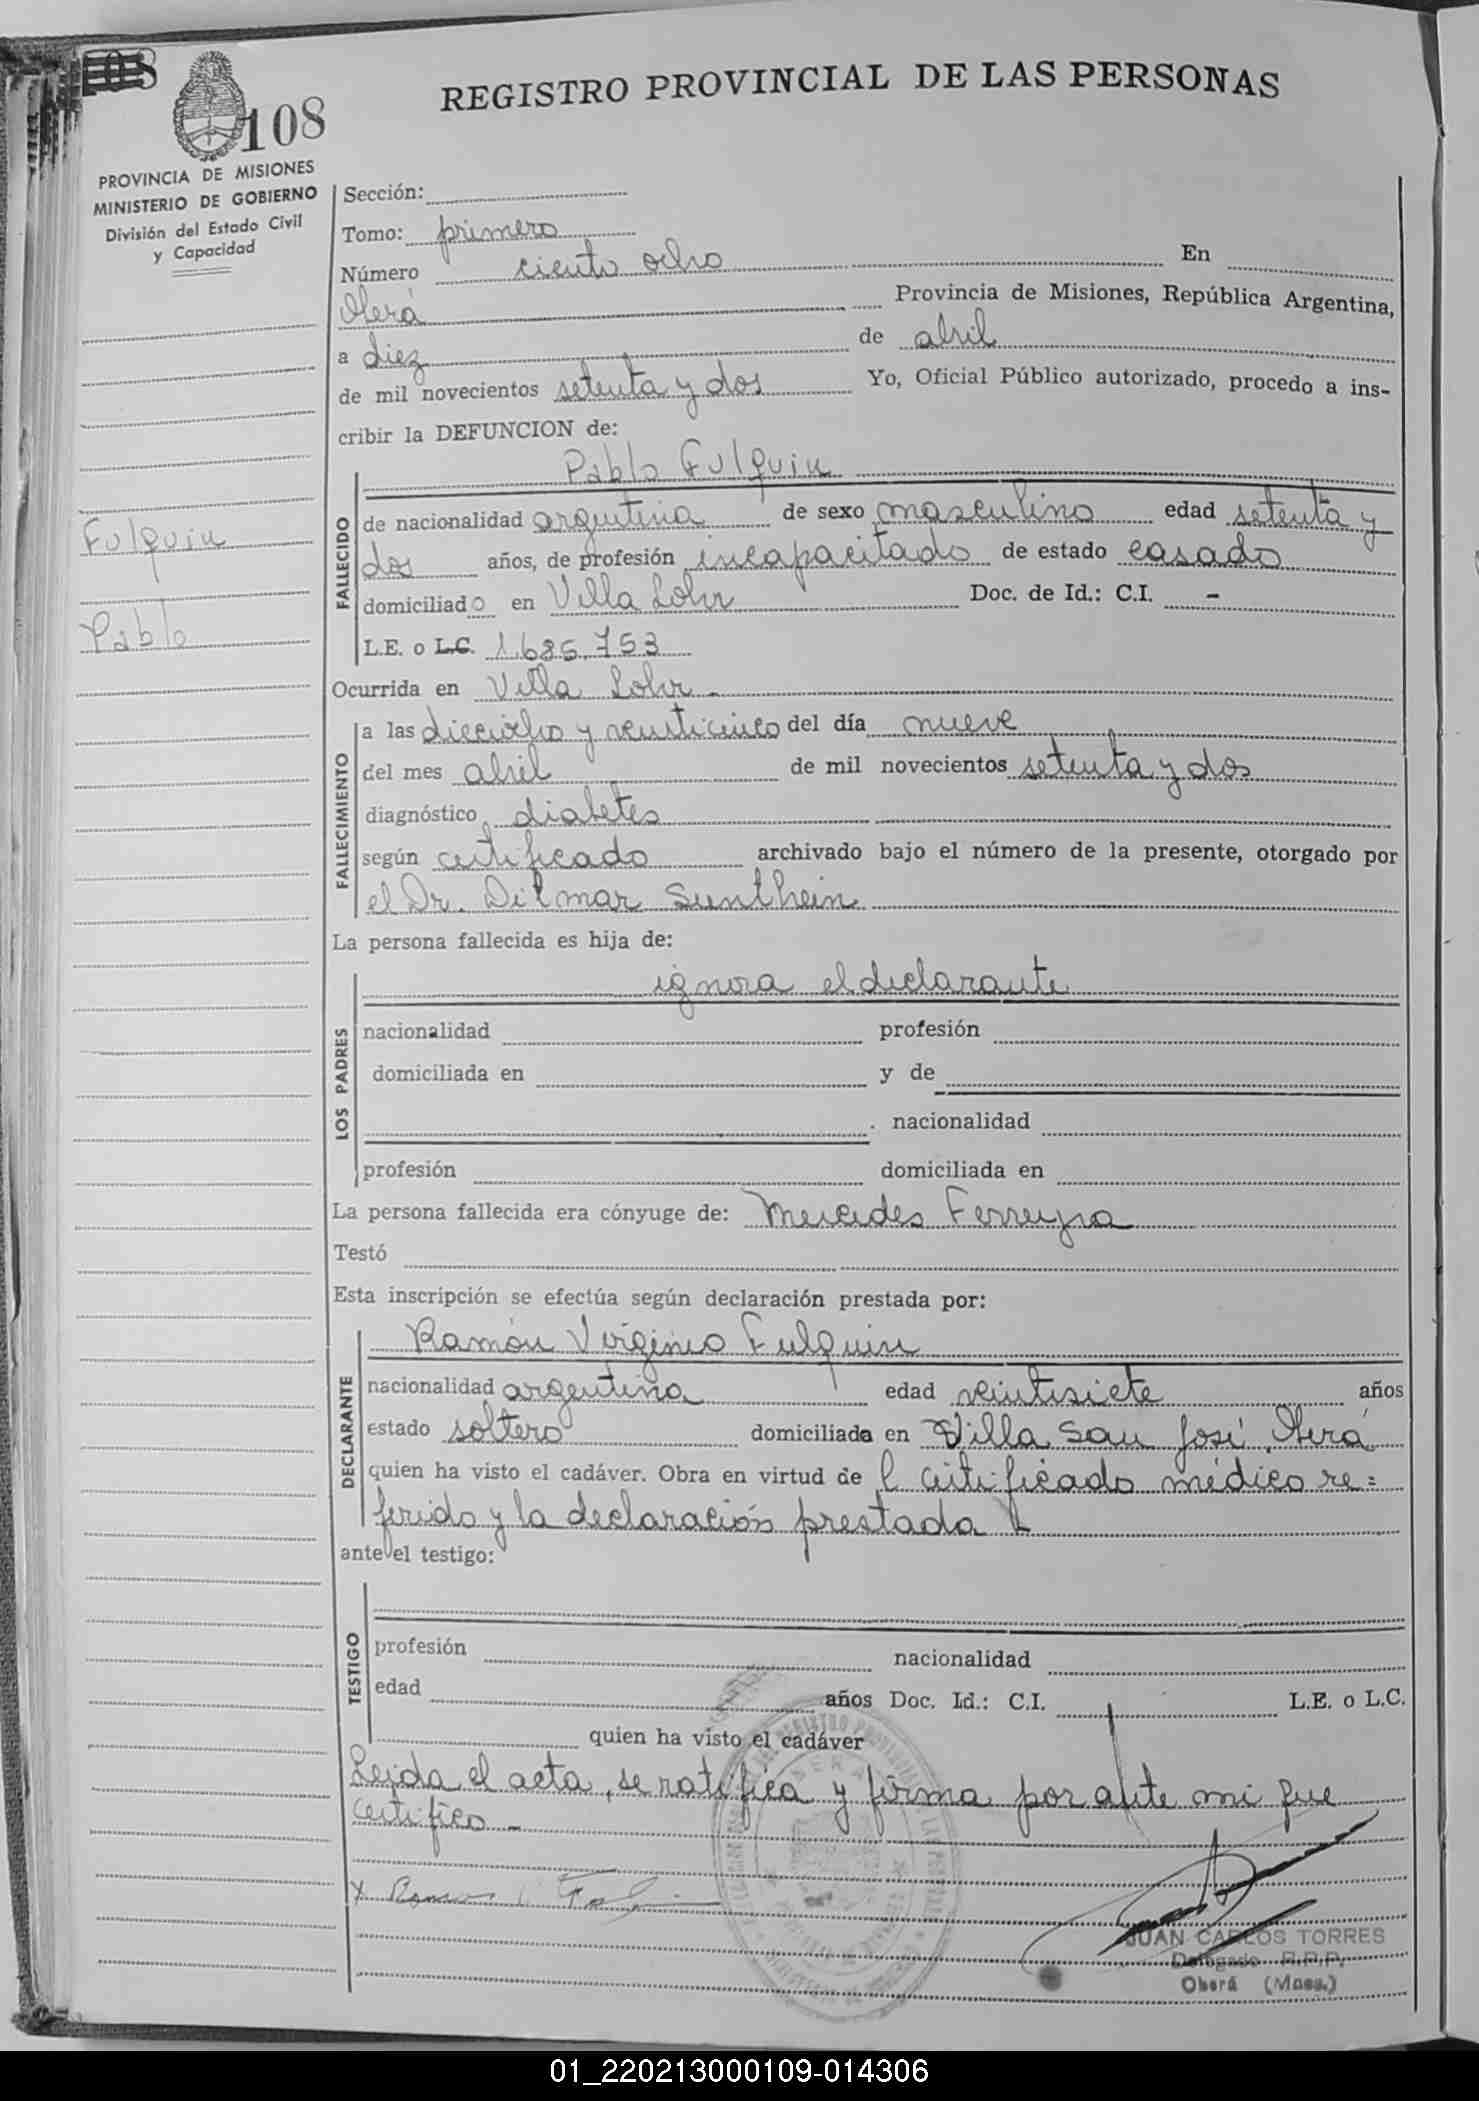 108
108
REGISTRO PROVINCIAL DE LAS PERSONAS
PROVINCIA DE MISIONES
MINISTERIO DE GOBIERNO
División del Estado Civil
y Capacidad
Sección:
Tomo: primero
Número ciento ocho En
Oberá Provincia de Misiones, República Argentina,
a diez de abril
de mil novecientos setenta y dos Yo, Oficial Público autorizado, procedo a ins-
cribir la DEFUNCION de:
Pablo Fulquin
Fulquin
Pablo
FALLECIDO
de nacionalidad argentina de sexo masculino edad setenta y
dos años, de profesión incapacitado de estado casado
domiciliado en Villa Lohr Doc. de Id.: C.I. -
L.E. o L.C. 1.685.753
Ocurrida en Villa Lohr -
FALLECIMIENTO
a las dieciocho y veinticinco del día nueve
del mes abril de mil novecientos setenta y dos
diagnóstico diabetes
según certificado archivado bajo el número de la presente, otorgado por
el Dr. Dilmar Sunthein
La persona fallecida es hija de:
LOS PADRES
ignora el declarante
nacionalidad profesión
domiciliada en y de
nacionalidad
profesión domiciliada en
La persona fallecida era cónyuge de: Mercedes Ferreyra
Testó
Esta inscripción se efectúa según declaración prestada por:
DECLARANTE
Ramón Virginio Fulquin
nacionalidad argentina edad veintisiete años
estado soltero domiciliado en Villa San José, Oberá
quien ha visto el cadáver. Obra en virtud de l certificado médico re=
ferido y la declaración prestada
ante el testigo:
TESTIGO
profesión nacionalidad
edad años Doc. Id.: C.I. L.E. o L.C.
quien ha visto el cadáver
Leída el acta, se ratifica y firma por ante mi que
certifico -
JUAN CARLOS TORRES
Delegado R.P.P.
Oberá (Mnes.)
01_220213000109-014306